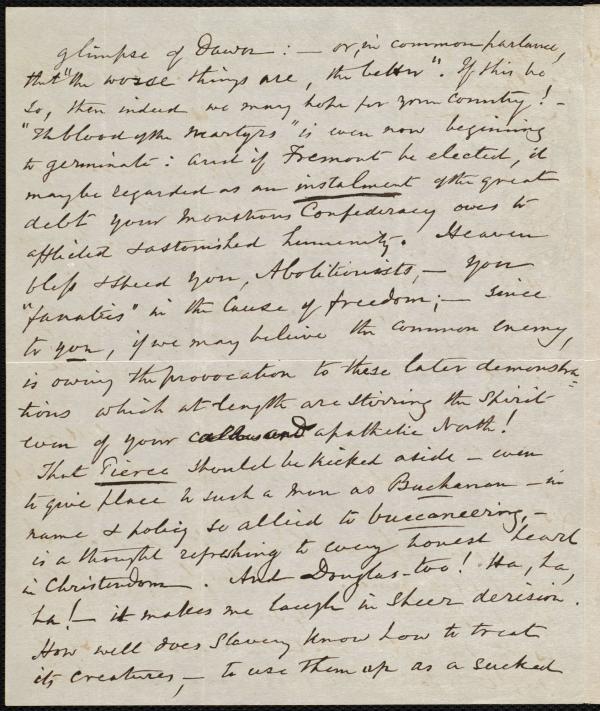 glimpse of Dawn: — or, in common parlance,
that "the worse things are, the better". If this be
so, then indeed we may hope for your country! —
"The blood of the Martyrs" is even now beginning
to germinate: and if Fremont be elected, it
may be regarded as an instalment of the great
debt your monstrous Confederacy owes to
afflicted & astonished humanity. Heaven
bless & speed you, Abolitionists, — you
"fanatics" in the cause of freedom; — since
to you, if we may believe the common enemy,
is owing the provocation to these later demonstra=
tions which at length are stirring the Spirit
even of your callous and apathetic North!
That Pierce should be kicked aside — even
to give place to such a man as Buchanan — in
name & policy so allied to buccaneering, —
is a thought refreshing to every honest heart
in Christendom. And Douglas — too! Ha, ha,
ha! — it makes me laugh in sheer derision.
How well does Slavery know how to treat
its creatures, — to use them up as a sucked